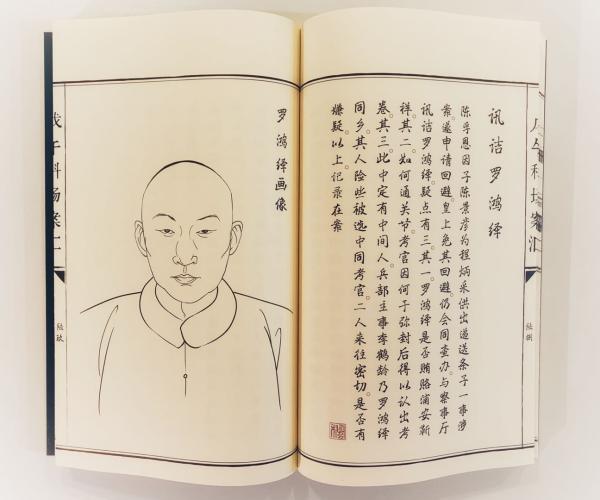 讯诘罗鸿绎
陈孚恩因子陈景彦为程炳采供出递送条子一事涉
案。遂申请回避。皇上免其回避。仍会同查办。与察事厅
讯诘罗鸿绎。疑点有三。其一。罗鸿绎是否贿赂浦安靳
祥。其二。如何通关节。考官因何于弥封后得以认出考
卷。其三。此中定有中间人。兵部主事李鹤龄乃罗鸿绎
同乡。其人险些被选中同考官。二人来往密切。是否有
嫌疑。以上。记录在案
陆捌
罗鸿绎画像
戊午科场案汇
陆玖